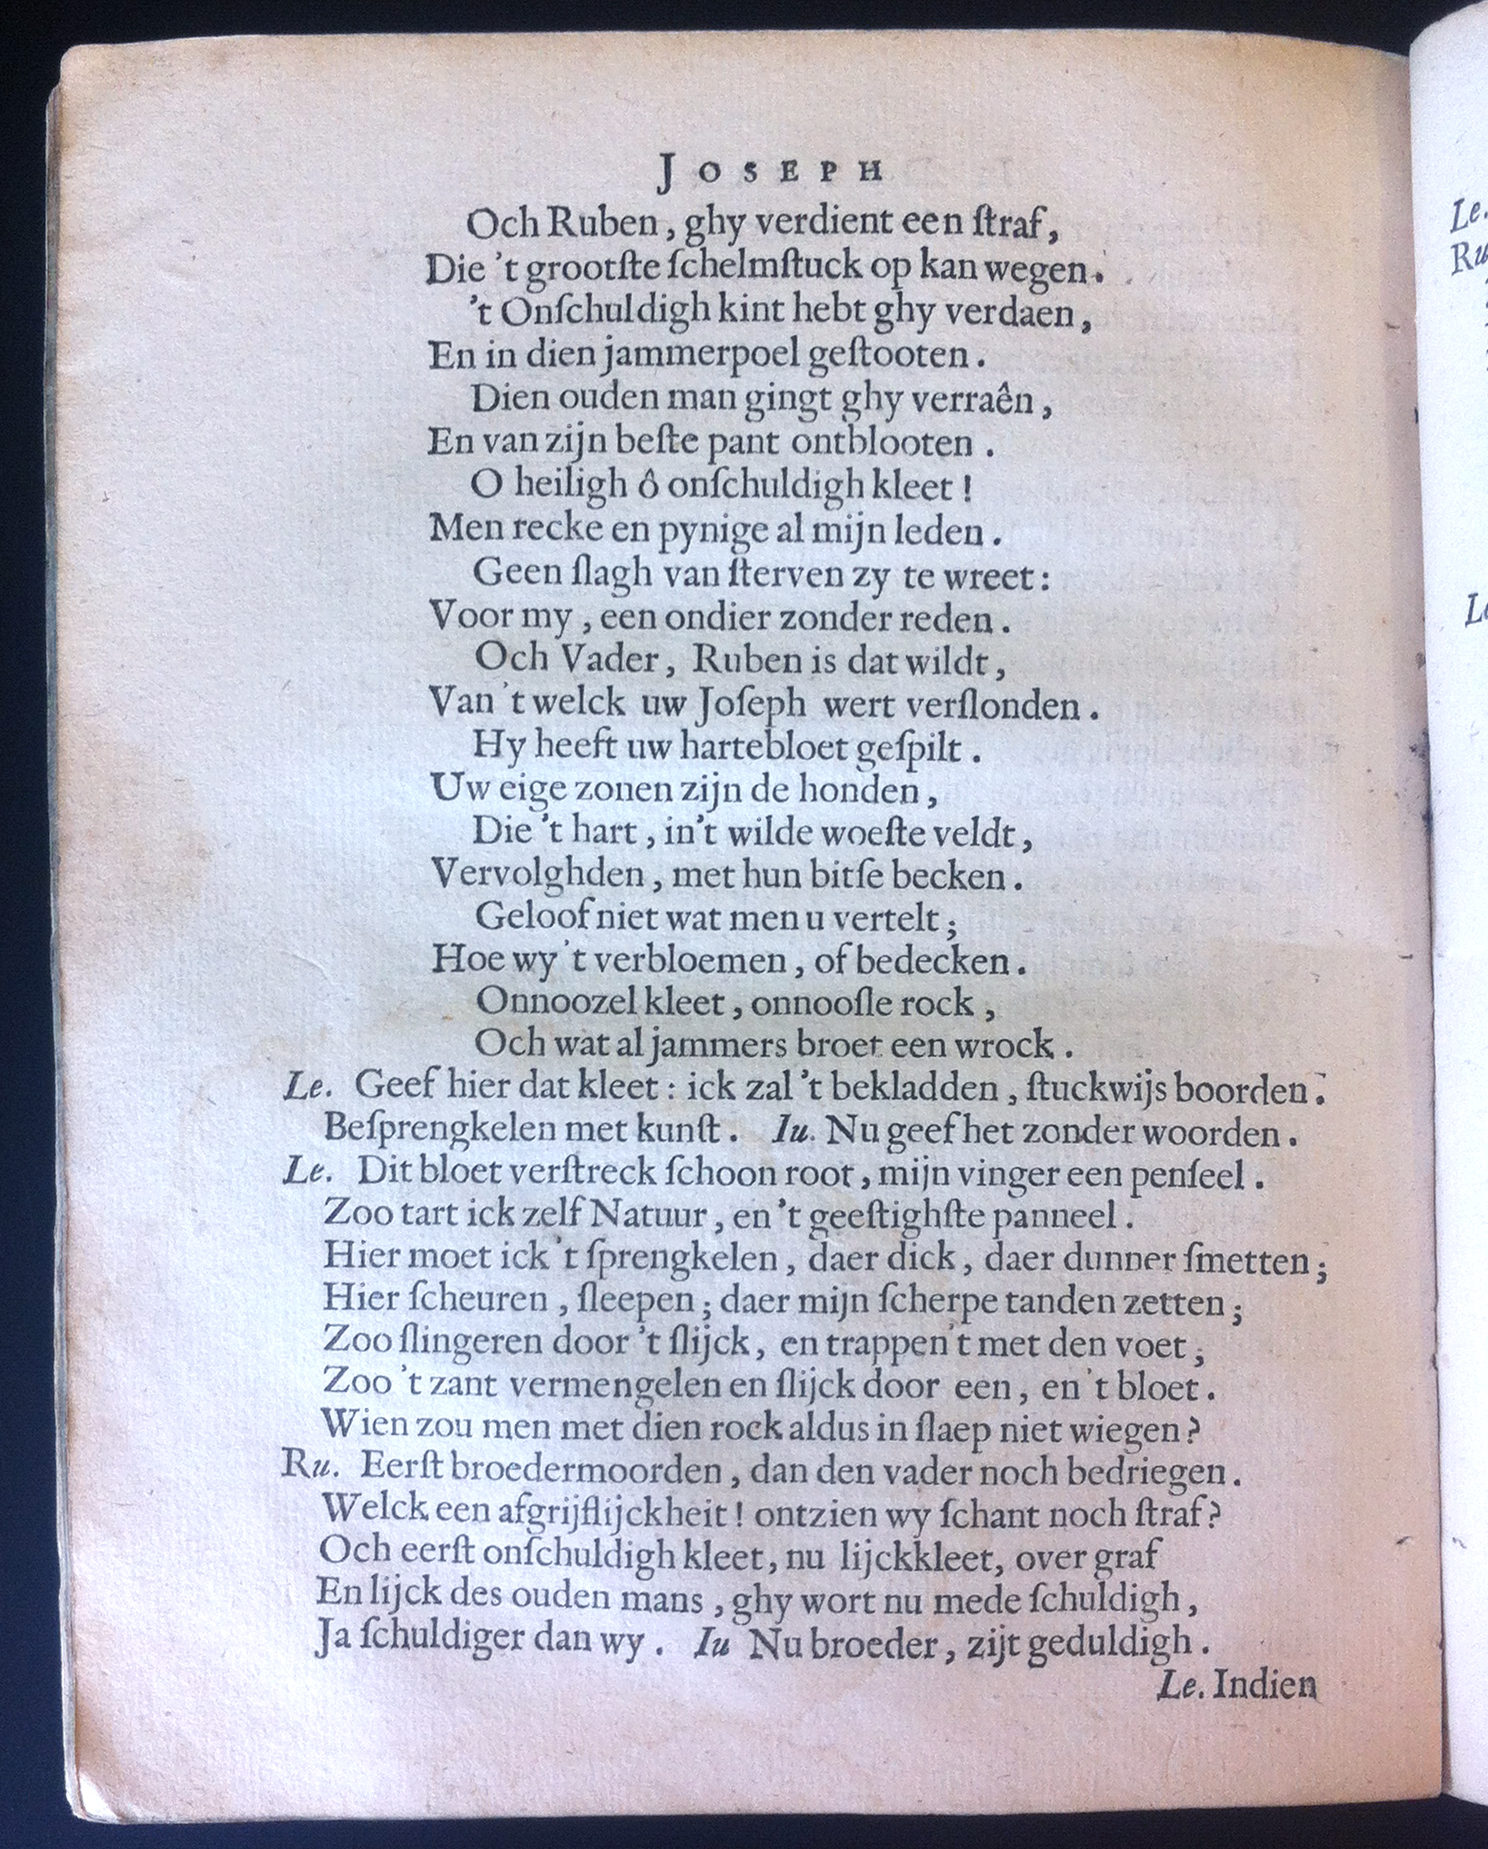 JOSEPH
Och Ruben, ghy verdient een ſtraf,
Die 't grootſte ſchelmſtuck op kan wegen.
't Onſchuldigh kint hebt ghy verdaen,
En in dien jammerpoel geſtooten.
Dien ouden man gingt ghy verraên,
En van zijn beſte pant ontblooten.
O heiligh ô onſchuldigh kleet!
Men recke en pynige al mijn leden.
Geen ſlagh van ſterven zy te wreet:
Voor my, een ondier zonder reden.
Och Vader, Ruben is dat wildt,
Van 't welck uw Joſeph wert verſlonden.
Hy heeft uw hartebloet geſpilt.
Uw eige zonen zijn de honden,
Die 't hart, in't wilde woeſte veldt,
Vervolghden, met hun bitſe becken.
Geloof niet wat men u vertelt;
Hoe wy 't verbloemen, of bedecken.
Onnoozel kleet, onnooſle rock,
Och wat al jammers broet een wrock.
Le. Geef hier dat kleet: ick zal 't bekladden, ſtuckwijs boorden.
Beſprengkelen met kunſt. Iu. Nu geef het zonder woorden.
Le. Dit bloet verſtreck ſchoon root, mijn vinger een penſeel.
Zoo tart ick zelf Natuur, en 't geeſtighſte panneel.
Hier moet ick 't ſprengkelen, daer dick, daer dunner ſmetten;
Hier ſcheuren, ſleepen; daer mijn ſcherpe tanden zetten;
Zoo ſlingeren door 't ſlijck, en trappen't met den voet;
Zoo 't zant vermengelen en ſlijck door een, en 't bloet.
Wien zou men met dien rock aldus in ſlaep niet wiegen?
Ru. Eerſt broedermoorden, dan den vader noch bedriegen.
Welck een afgrijſlijckheit! ontzien wy ſchant noch ſtraf?
Och eerſt onſchuldigh kleet, nu lijckkleet, over graf
En lijck des ouden mans, ghy wort nu mede ſchuldigh,
Ja ſchuldiger dan wy. Iu Nu broeder, zijt geduldigh.
Le. Indien
Le.
Ru